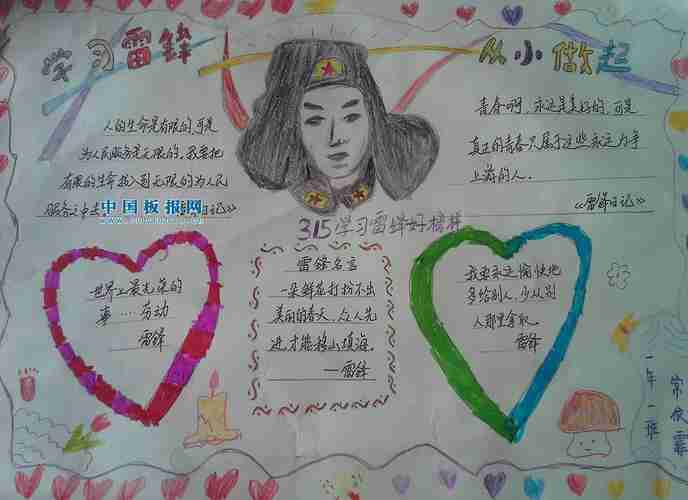 学习雷锋
从小做起
人的生命是有限的,可是
为人民服务是无限的,我要把
有限的生命投入到无限的为人民
服务之中去
日记》
中国板报网
青春啊,永远是美好的,可是
真正的青春只属于这些永远力争
上游的人。
《雷锋日记》
315学习雷锋好榜样
世界上最光荣的
事…劳动
雷锋
雷锋名言
一朵鲜花打扮不出
美丽的春天,众人先
进才能移山填海。
—雷锋
我要永远愉快地
多给别人,少从别
人那里拿取。
雷锋
一年一班
常
霏